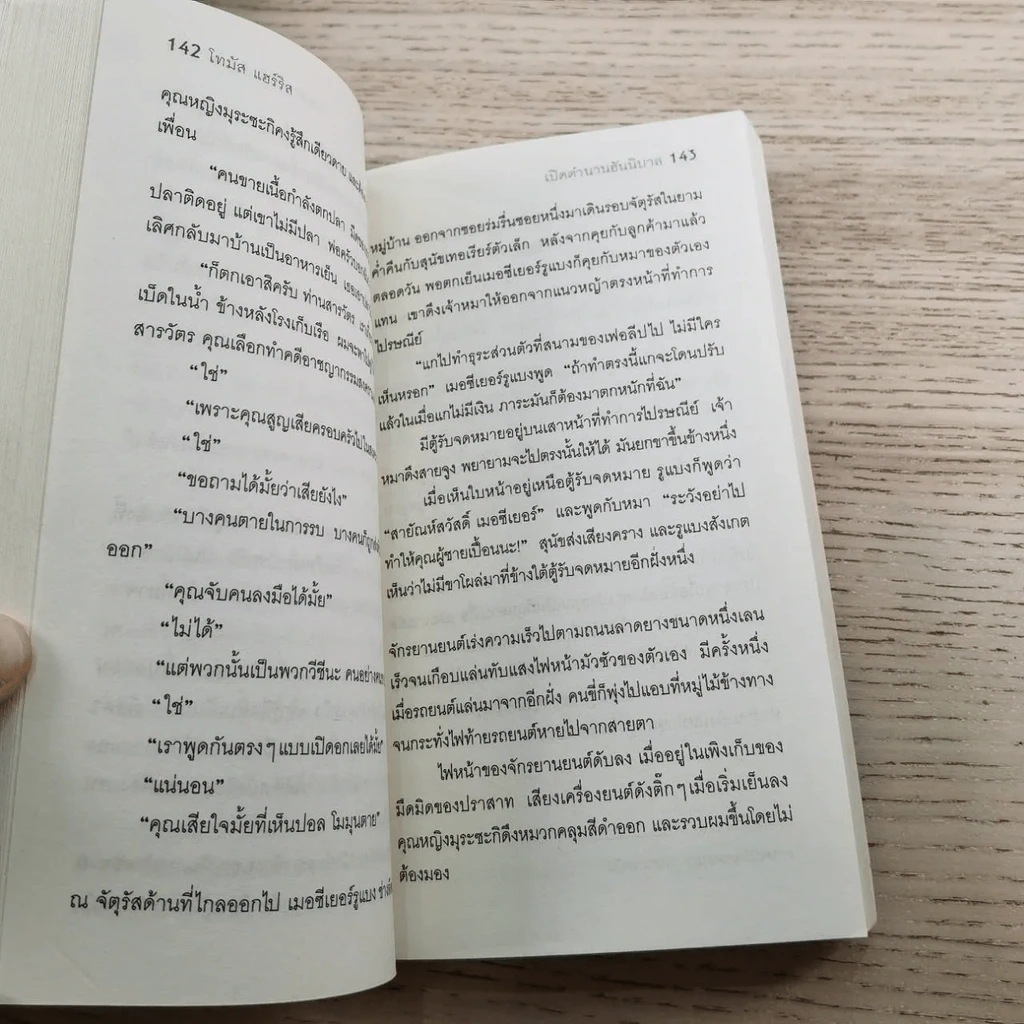 142 โทมัส แฮร์ริส
คุณหญิงมุระซะกิคงรู้สึกเดียวดาย
เพื่อน
“คนขายเนื้อกำลังตกปลา
ปลาติดอยู่ แต่เขาไม่มีปลา
เลิศกลับมาบ้านเป็นอาหารเย็น
“ก็ตกเอาสิครับ ท่านสารวัตร
เบ็ดในน้ำ ข้างหลังโรงเก็บเรือ
สารวัตร คุณเลือกทำคดีอาชญากรรม
“ใช่”
“เพราะคุณสูญเสียครอบครัวไป
“ใช่”
“ขอถามได้มั้ยว่าเสียยังไง”
“บางคนตายในการรบ
ออก”
“คุณจับคนลงมือได้มั้ย”
“ไม่ได้”
“แต่พวกนั้นเป็นพวกวีชีนะ คนอย่าง
“ใช่”
“เราพูดกันตรงๆ แบบเปิดอกเลยได้มั้ย”
“แน่นอน”
“คุณเสียใจมั้ยที่เห็นปอล โมมุนตาย”
ณ จัตุรัสด้านที่ไกลออกไป เมอซีเยอร์รูแบง
เปิดตำนานฮันนิบาล 143
หมู่บ้าน ออกจากซอยร่มรื่นซอยหนึ่งมาเดินรอบจัตุรัสในยาม
ค่ำคืนกับสุนัขเทอเรียร์ตัวเล็ก หลังจากคุยกับลูกค้ามาแล้ว
ตลอดวัน พอตกเย็นเมอซีเยอร์รูแบงก็คุยกับหมาของตัวเอง
แทน เขาดึงเจ้าหมาให้ออกจากแนวหญ้าตรงหน้าที่ทำการ
ไปรษณีย์
“แกไปทำธุระส่วนตัวที่สนามของเฟอลีปไป ไม่มีใคร
เห็นหรอก” เมอซีเยอร์รูแบงพูด “ถ้าทำตรงนี้แกจะโดนปรับ
แล้วในเมื่อแกไม่มีเงิน ภาระมันก็ต้องมาตกหนักที่ฉัน”
มีตู้รับจดหมายอยู่บนเสาหน้าที่ทำการไปรษณีย์ เจ้า
หมาดึงสายจูง พยายามจะไปตรงนั้นให้ได้ มันยกขาขึ้นข้างหนึ่ง
เมื่อเห็นใบหน้าอยู่เหนือตู้รับจดหมาย รูแบงก็พูดว่า
“สายัณห์สวัสดิ์ เมอซีเยอร์” และพูดกับหมา “ระวังอย่าไป
ทำให้คุณผู้ชายเปื้อนนะ!” สุนัขส่งเสียงคราง และรูแบงสังเกต
เห็นว่าไม่มีขาโผล่มาที่ข้างใต้ตู้รับจดหมายอีกฝั่งหนึ่ง
จักรยานยนต์เร่งความเร็วไปตามถนนลาดยางขนาดหนึ่งเลน
เร็วจนเกือบแล่นทับแสงไฟหน้ามัวซัวของตัวเอง มีครั้งหนึ่ง
เมื่อรถยนต์แล่นมาจากอีกฝั่ง คนขี่ก็พุ่งไปแอบที่หมู่ไม้ข้างทาง
จนกระทั่งไฟท้ายรถยนต์หายไปจากสายตา
ไฟหน้าของจักรยานยนต์ดับลง เมื่ออยู่ในเพิงเก็บของ
มืดมิดของปราสาท เสียงเครื่องยนต์ดังติ๊กๆ เมื่อเริ่มเย็นลง
คุณหญิงมุระซะกิดึงหมวกคลุมสีดำออก และรวบผมขึ้นโดยไม่
ต้องมอง